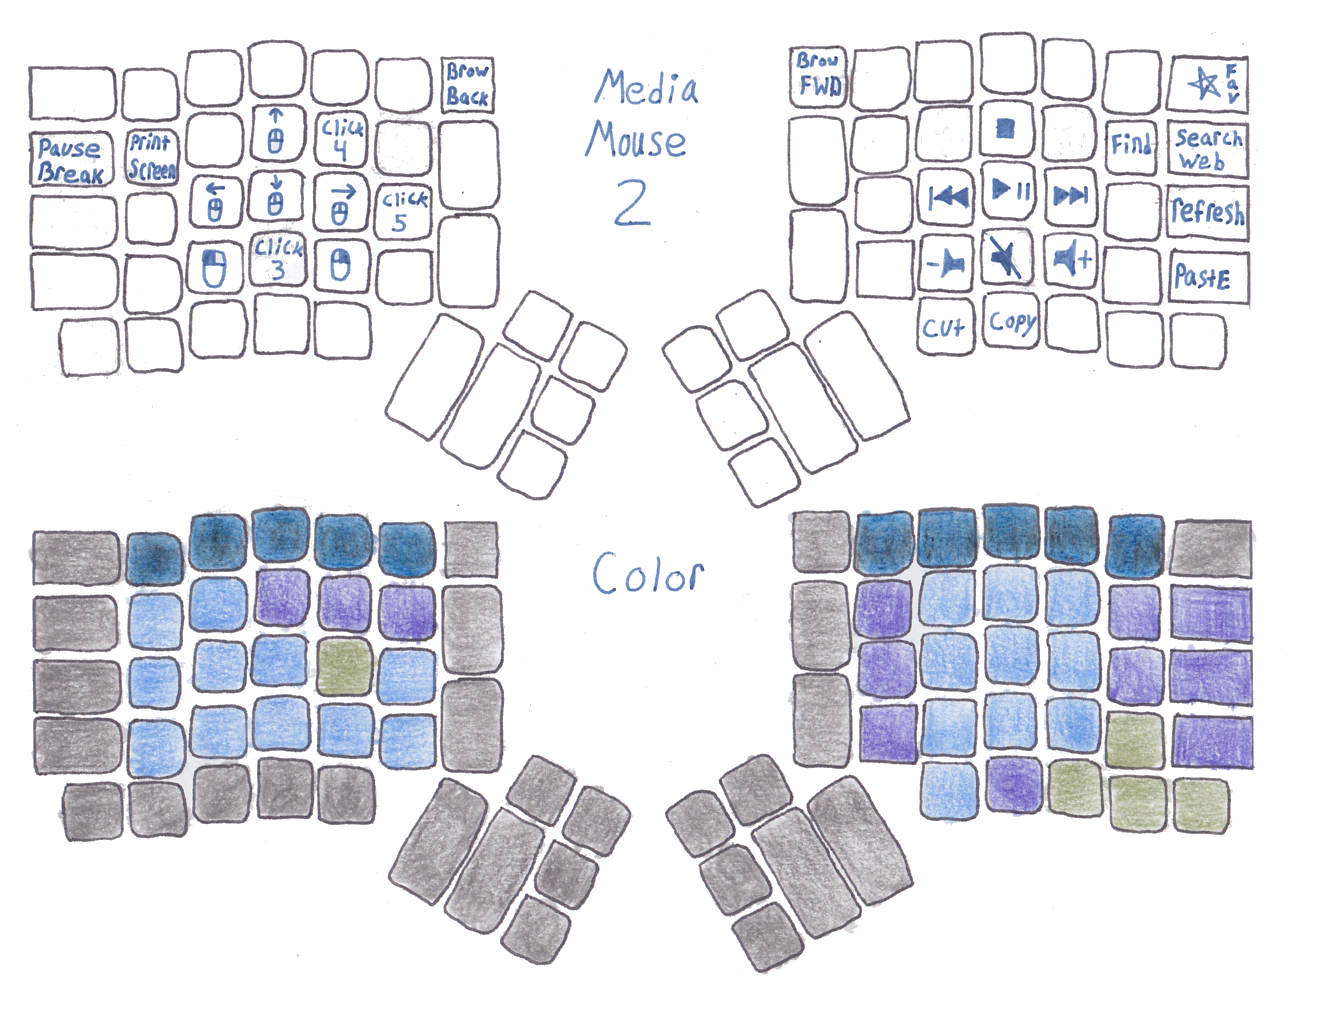 Brow
Back
Pause
Break
Print
Screen
Click
4
Click
5
Click
3
Media
Mouse
2
Brow
FWD
Fav
Find
Search
Web
refresh
- +
PastE
Cut
Copy
Color